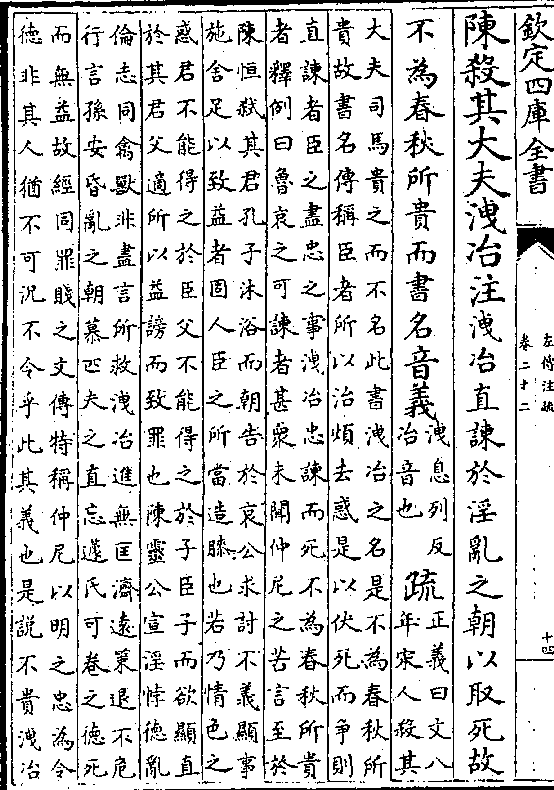 欽定四庫全書
左傳注疏
卷二十二
十四
陳殺其大夫洩冶注洩冶直諫於淫亂之朝以取死故
不為春秋所貴而書名音義洩息列反
冶音也
疏正義曰文八
年宋人殺其
大夫司馬貴之而不名此書洩冶之名是不為春秋所
貴故書名傳稱臣者所以治煩去惑是以伏死而爭則
直諫者臣之盡忠之事洩冶忠諫而死不為春秋所貴
者釋例曰魯哀之可諫者甚衆未聞仲尼之苦言至於
陳恒弑其君孔子沐浴而朝告於哀公求討不義顯事
施舍足以致益者固人臣之所當造膝也若乃情色之
惑君不能得之於臣父不能得之於子臣子而欲顯直
於其君父適所以益謗而致罪也陳靈公宣淫悖德亂
倫志同禽獸非盡言所救洩冶進無匡濟遠策退不危
行言孫安昏亂之朝慕匹夫之直忘蘧氏可卷之德死
而無益故經同罪賤之文傳特稱仲尼以明之忠為令
德非其人猶不可況不令乎此其義也是説不貴洩冶